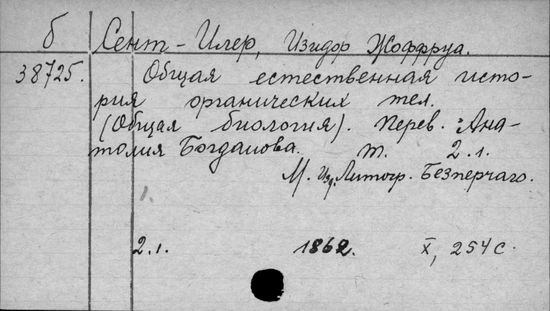 б Сент-Илер, Изидор Жоффруа.
38725. Общая естественная исто-
рия органических тел.
(Общая биология). Перев. Ана-
толия Богданова. т. 2.1.
М. Изд. Литогр. Безперчаго.
1.
2.1. 1862. X, 254 с.